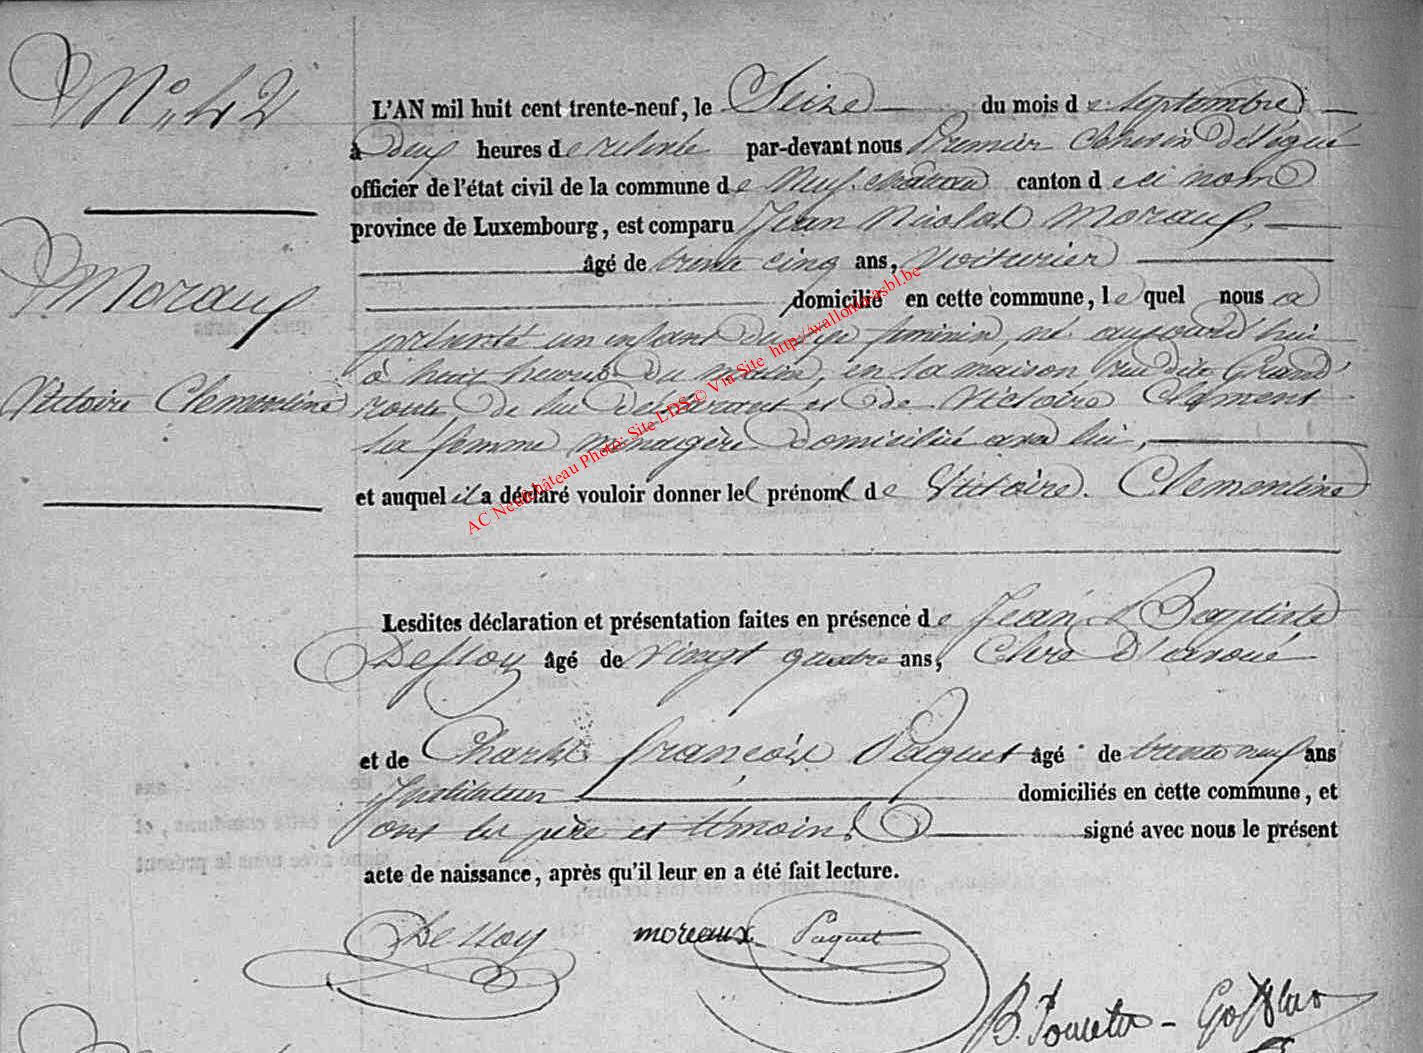 N° 42
L'AN mil huit cent trente-neuf, le Seize du mois de septembre
à Deux heures de relevée par-devant nous Premier Echevin Délégué
officier de l'état civil de la commune de Neufchateau canton de ce nom
province de Luxembourg, est comparu Jean Nicolas Moraux,
âgé de trente cinq ans, Voiturier
domicilié en cette commune, le quel nous a
présenté un enfant du sexe feminin, né aujourd'hui
à huit heures du matin, en sa maison rue dite Grand'
route, de lui Déclarant et de Victoire Clément
sa femme ménagère domiciliée avec lui,
et auquel il a déclaré vouloir donner les prénoms de Victoire. Clementine
Moraux
Victoire Clementine
Lesdites déclaration et présentation faites en présence de Jean Baptiste
Desloy âgé de vingt quatre ans, Clerc D'avoué
et de Charles françois Paquet âgé de trente neuf ans
Instituteur domiciliés en cette commune, et
ont les père et témoins signé avec nous le présent
acte de naissance, après qu'il leur en a été fait lecture.
moreaux Paquet
AC Neufchâteau Photo: Site LDS © Via Site http://wallonia-asbl.be